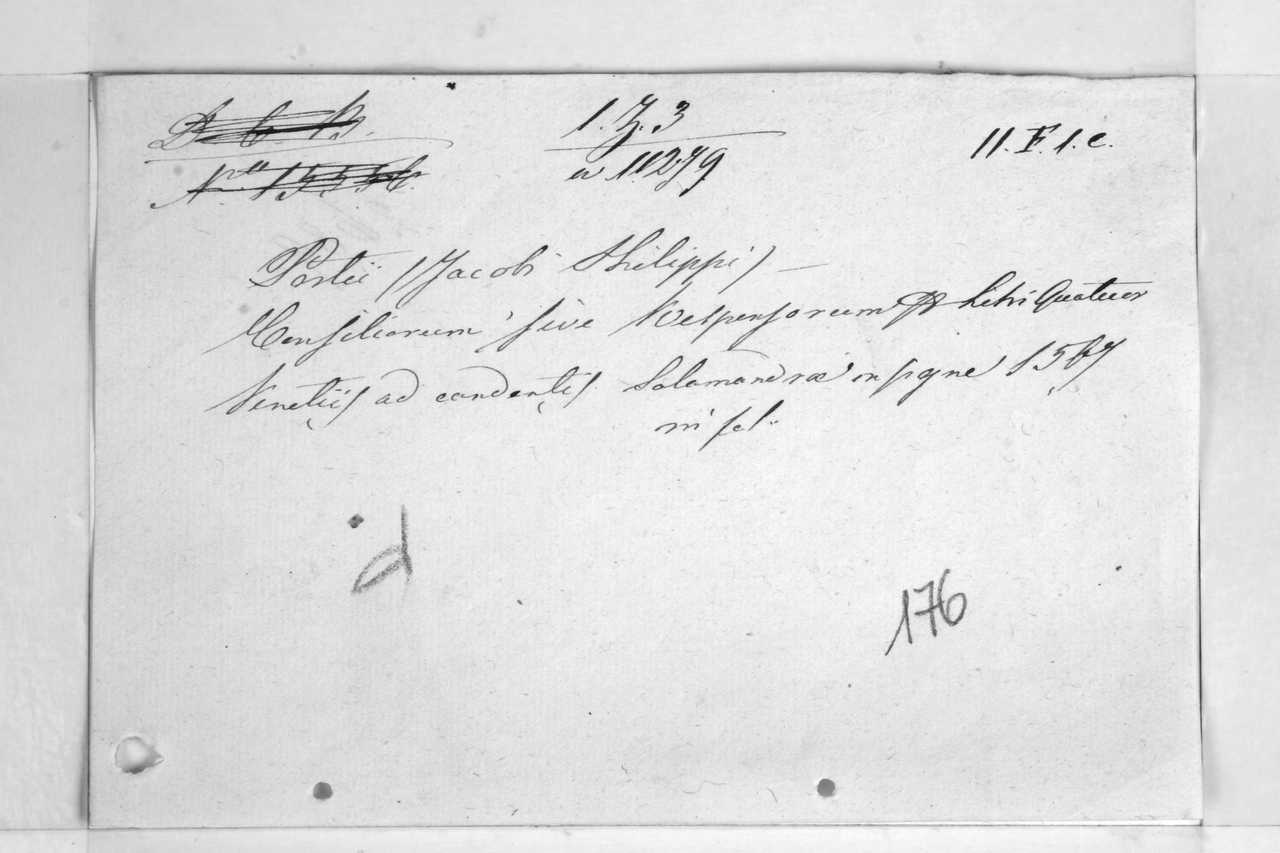 1. Z. 3
a 11279
11. F. 1. c.
Portii (Jacobi Philippi) —
Consiliorum sive Responsorum Libri Quatuor
Venetiis ad candentis Salamandrae insigne 1567
in fol.
d
176